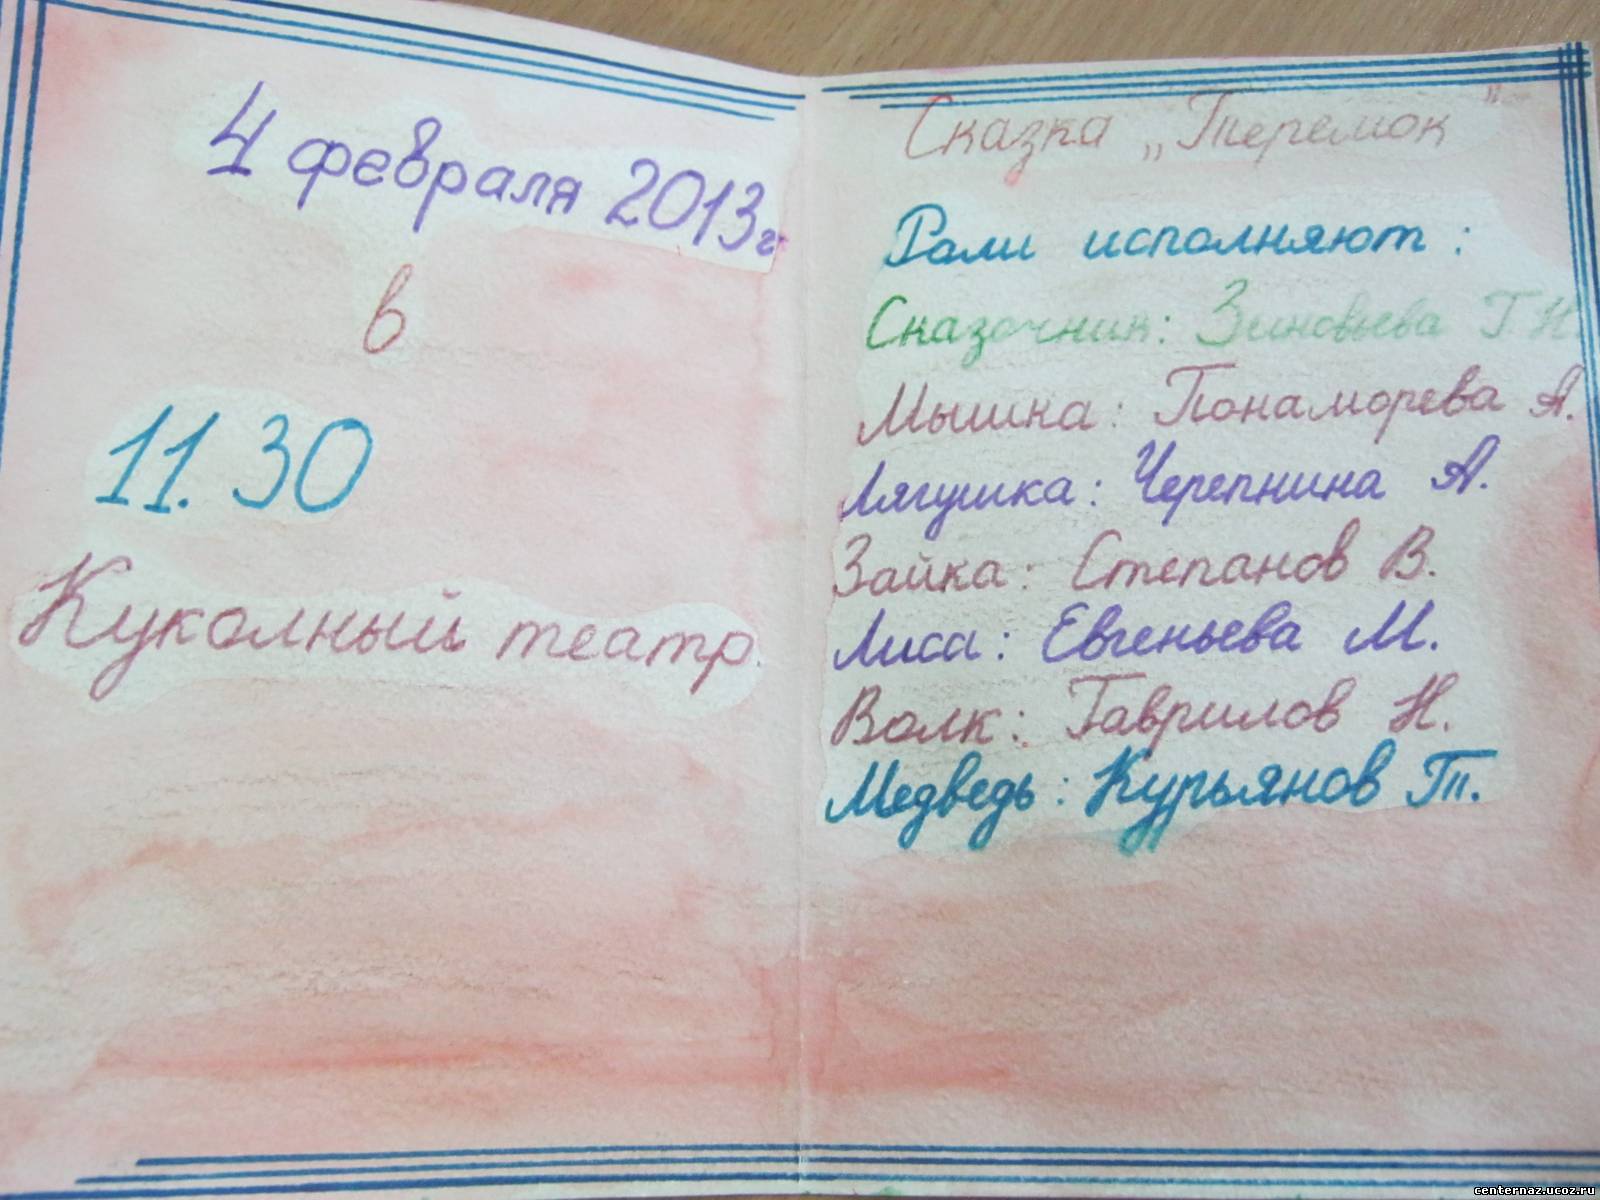 4 февраля 2013г
в
11.30
Куколный театр.
Сказка „Теремок"
Роли исполняют:
Сказочник: Зиновьева Г Н.
Мышка: Понаморева А.
Лягушка: Черепнина А.
Зайка: Степанов В.
Лиса: Евгеньева М.
Волк: Гаврилов Н.
Медведь: Курьянов Т.
centernaz.ucoz.ru